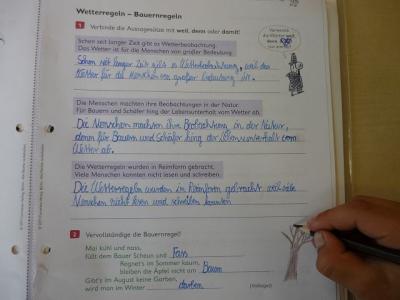 Wetterregeln – Bauernregeln
1 Verbinde die Aussagesätze mit weil, denn oder damit!
Verwende die Wörter weil, denn
Schon seit langer Zeit gibt es Wetterbeobachtung.
Das Wetter ist für die Menschen von großer Bedeutung.
Schon seit langer Zeit gibt es Wetterbeobachtung, weil das
Wetter für die Menschen von großer Bedeutung ist.
Die Menschen machten ihre Beobachtungen in der Natur.
Für Bauern und Schäfer hing der Lebensunterhalt vom Wetter ab.
Die Menschen machten ihre Beobachtung in der Natur,
denn für Bauern und Schäfer hing der Lebensunterhalt vom
Wetter ab.
Die Wetterregeln wurden in Reimform gebracht.
Viele Menschen konnten nicht lesen und schreiben.
Die Wetterregeln wurden in Reimform gebracht weil viele
Menschen nicht lesen und schreiben konnten
2 Vervollständige die Bauernregel!
Mai kühl und nass,
füllt dem Bauer Scheun und Fass
Regnet's im Sommer kaum,
bleiben die Äpfel nicht am Baum
Gibt's im August keine Garben,
wird man im Winter darben